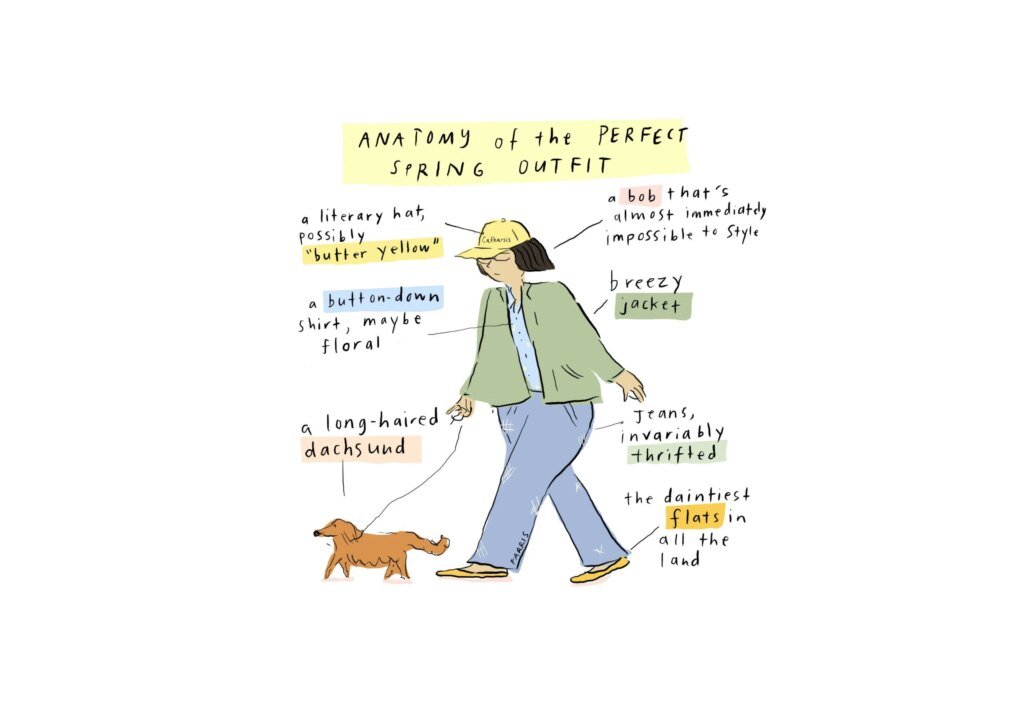 ANATOMY of the PERFECT
SPRING OUTFIT
a literary hat,
possibly
"butter yellow"
a bob that's
almost immediately
impossible to style
Catharsis
a button-down
shirt, maybe
floral
breezy
jacket
a long-haired
dachsund
Jeans,
invariably
thrifted
the daintiest
flats in
all the
land
PARRIS